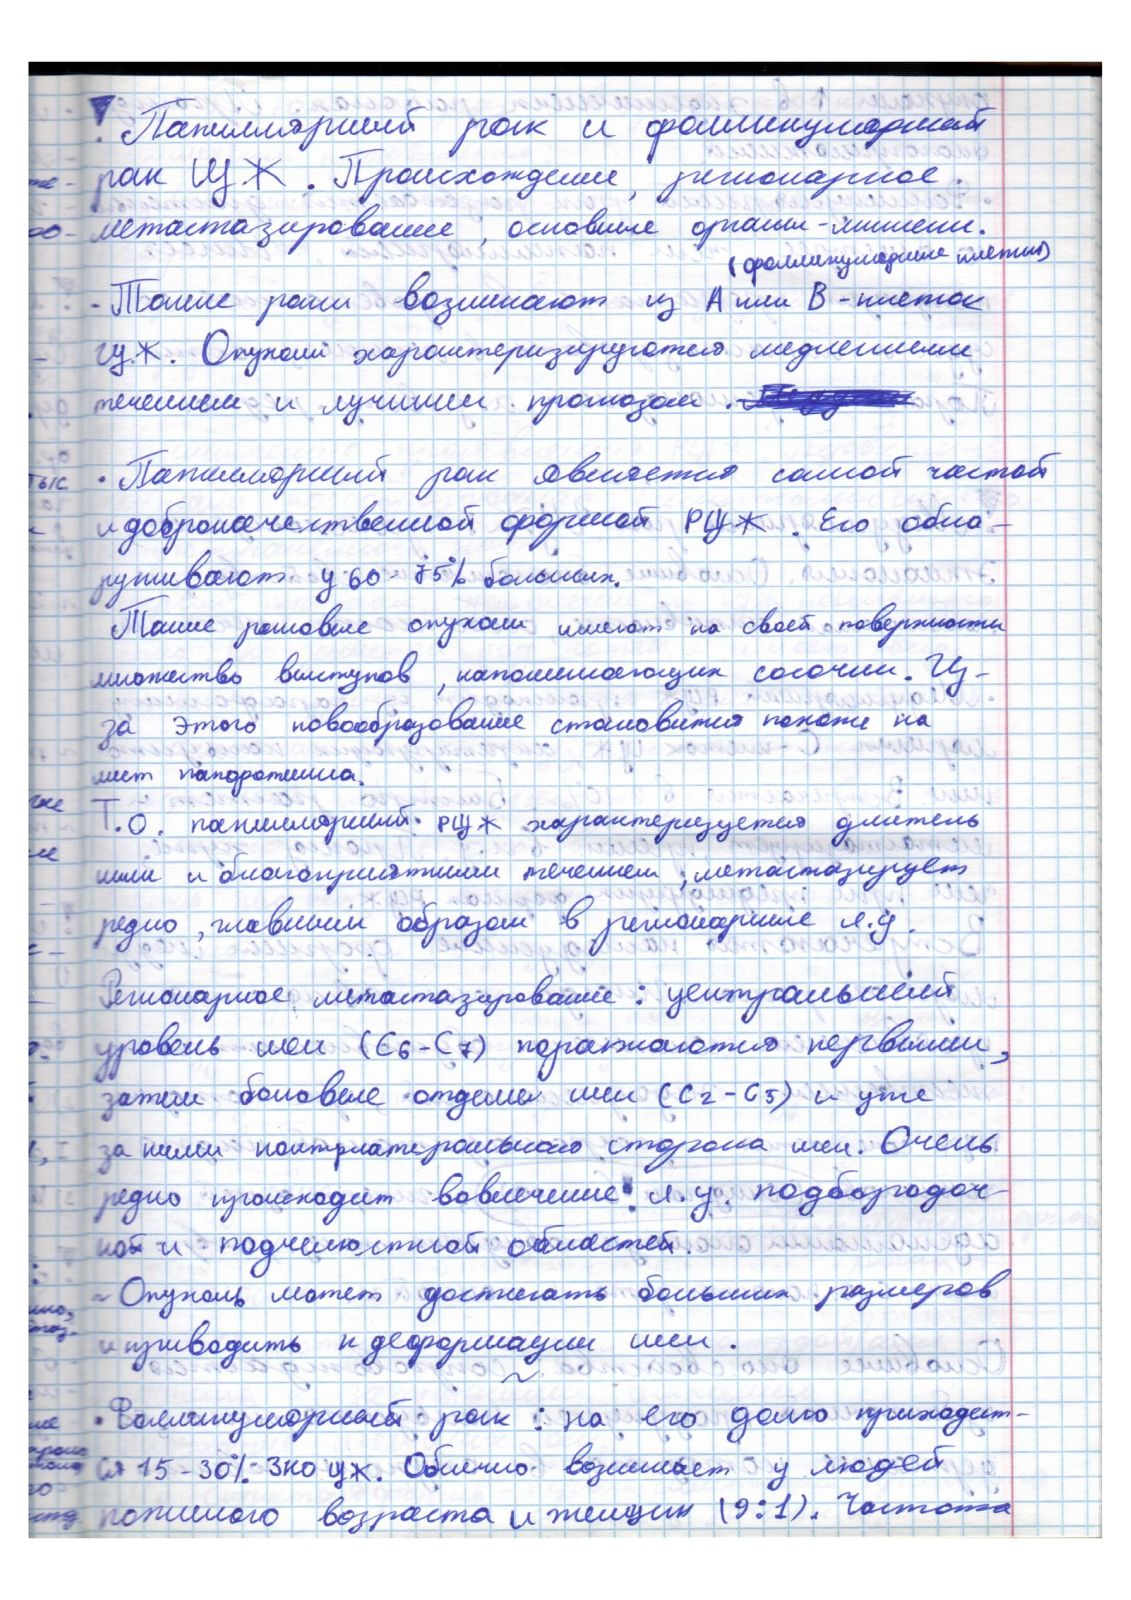 ! Папиллярный рак и фолликулярный
рак ЩЖ. Происхождение, регионарное
метастазирование, основные органы-мишени.
(фолликулярные клетки)
- Такие раки возникают из А или В-клеток
ЩЖ. Опухоли характеризируются медленным
течением и лучшим прогнозом.
• Папиллярный рак является самой частой
и доброкачественной формой РЩЖ. Его обна-
руживают у 60-75% больных.
Такие раковые опухоли имеют на своей поверхности
множество выступов, напоминающих сосочки. Из-
за этого новообразование становится похоже на
лист папоротника.
Т.О. папиллярный РЩЖ характеризуется длитель
ным и благоприятным течением, метастазирует
редко, главным образом в регионарные л.у.
Регионарное метастазирование: центральный
уровень шеи (С6-С7) поражаются первыми,
затем боковые отделы шеи (С2-С5) и уже
за ними контрлатеральная сторона шеи. Очень
редко происходит вовлечение л.у. подбородоч-
ной и подчелюстной областей.
~ Опухоль может достигать больших размеров
и приводить к деформации шеи.
~
• Фолликулярный рак: на его долю приходит-
ся 15-30% ЗНО ЩЖ. Обычно возникает у людей
пожилого возраста и женщин (9:1). Частота